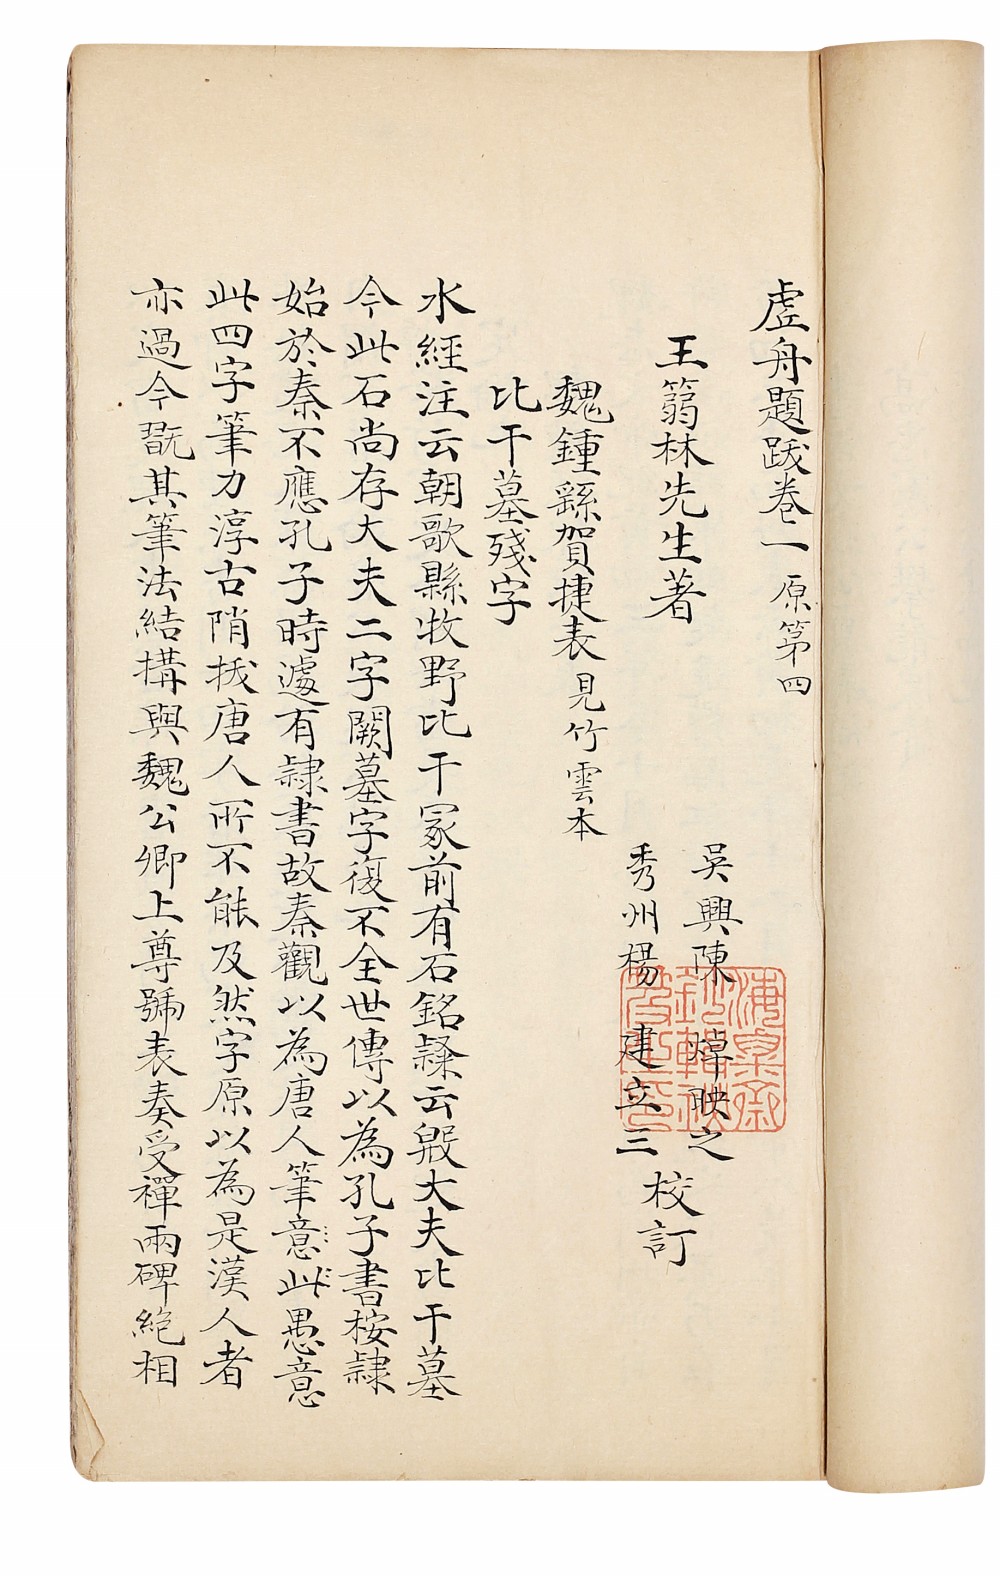 虛舟題跋卷一 原第四
王篛林先生著
吳興陳 焯映之
秀州楊 建立三
校訂
魏鍾繇賀捷表 見竹雲本
比干墓殘字
水經注云朝歌縣牧野比干冢前有石銘隸云殷大夫比干墓
今此石尚存大夫二字闕墓字復不全世傳以為孔子書桉隸
始於秦不應孔子時遽有隸書故秦觀以為唐人筆意此愚意
此四字筆力淳古陗拔唐人所不能及然字原以為是漢人者
亦過今翫其筆法結構與魏公卿上尊號表奏受禪兩碑絶相